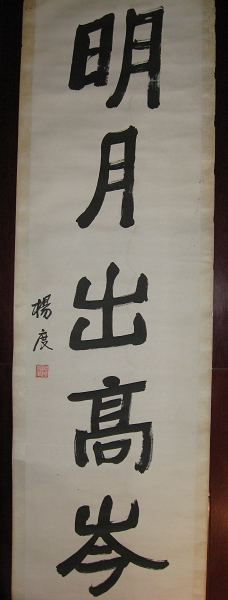 明月出高岑
楊度